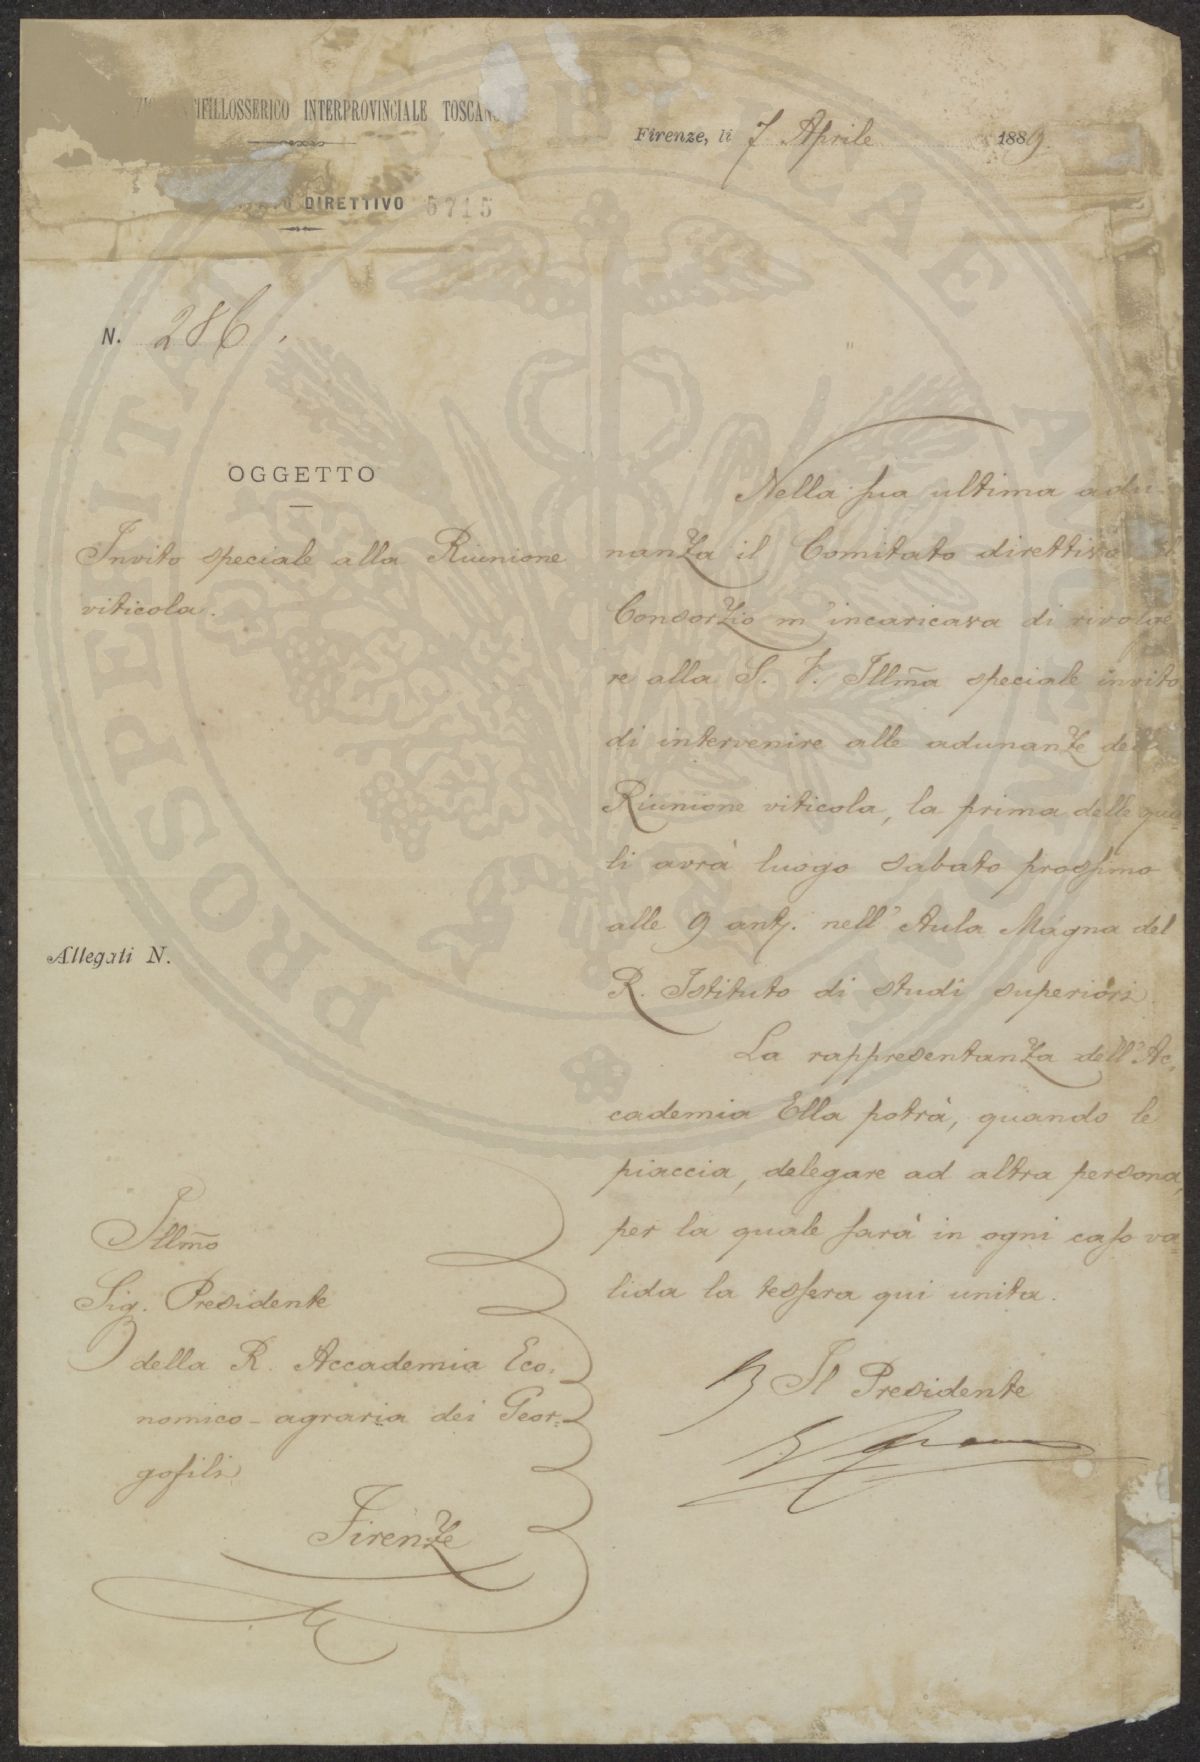 INTERPROVINCIALE
Firenze, li 7 Aprile 1889
DIRETTIVO 5715
N. 286.
OGGETTO
Invito speciale alla Riunione
viticola.
Allegati N.
Illmo
Sig. Presidente
della R. Accademia Eco-
nomico-agraria dei Geor-
gofili
Firenze
Nella sua ultima adu-
nanza il Comitato direttivo
Consorzio m'incaricava di rivolge
re alla S. V. Illma speciale invito
di intervenire alle adunanze della
Riunione viticola, la prima delle qua-
li avrà luogo sabato prossimo
alle 9 ant. nell'Aula Magna del
R. Istituto di studi superiori.
La rappresentanza dell'Ac-
cademia Ella potrà, quando le
piaccia, delegare ad altra persona,
per la quale sarà in ogni caso va-
lida la tessera qui unita.
Il Presidente
PROSPERITATI PUBLICAE AUGENDAE